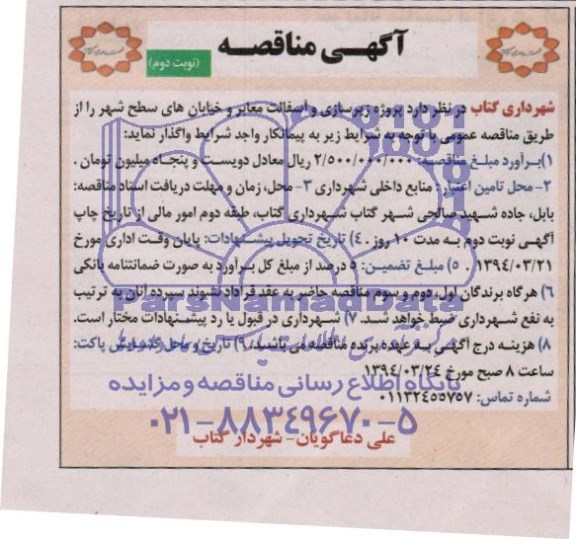 آگهـی مناقصـه
(نوبت دوم)
شهرداری گتاب در نظر دارد پروژه زیرسازی و آسفالت معابر و خیابان های سطح شهر را از
طریق مناقصه عمومی با توجه به شرایط زیر به پیمانکار واجد شرایط واگذار نماید:
۱)بـرآورد مبلـغ مناقصـه: ۲/۵۰۰/۰۰۰/۰۰۰ ریال معادل دویسـت و پنجـاه میلیون تومان .
۲- محل تامین اعتبار: منابع داخلی شهرداری ۳- محل، زمان و مهلت دریافت اسناد مناقصه:
بابل، جاده شـهید صالحی شـهر گتاب شـهرداری گتاب، طبقه دوم امور مالی از تاریخ چاپ
آگهـی نوبت دوم بـه مدت ۱۰ روز . ۴) تاریخ تحویل پیشـنهادات: پایان وقـت اداری مورخ
۱۳۹۴/۰۳/۲۱ . ۵) مبلـغ تضمیـن: ۵ درصـد از مبلغ کل بـرآورد به صورت ضمانتنامه بانکی
۶) هرگاه برندگان اول، دوم و سوم مناقصه حاضر به عقد قرداد نشوند سپرده آنان به ترتیب
به نفع شـهرداری ضبط خواهد شـد. ۷) شـهرداری در قبول یا رد پیشـنهادات مختار است.
۸) هزینـه درج آگهـی بـه عهده برنده مناقصه می باشد. ۹) تاریخ و محل گشـایش پاکت:
ساعت ۸ صبح مورخ ۱۳۹۴/۰۳/۲۴
شماره تماس: ۰۱۱۳۲۴۵۵۷۵۷
علی دعاگویان- شهردار گتاب
ParsNamadData
پایگاه اطلاع رسانی مناقصه و مزایده
۰۲۱-۸۸۳۴۹۶۷۰-۵